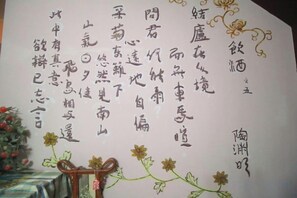 飲酒 之五
陶淵明
結廬在人境
而無車馬喧
問君何能爾
心遠地自偏
采菊東籬下
悠然見南山
山氣日夕佳
飛鳥相與還
此中有真意
欲辨已忘言